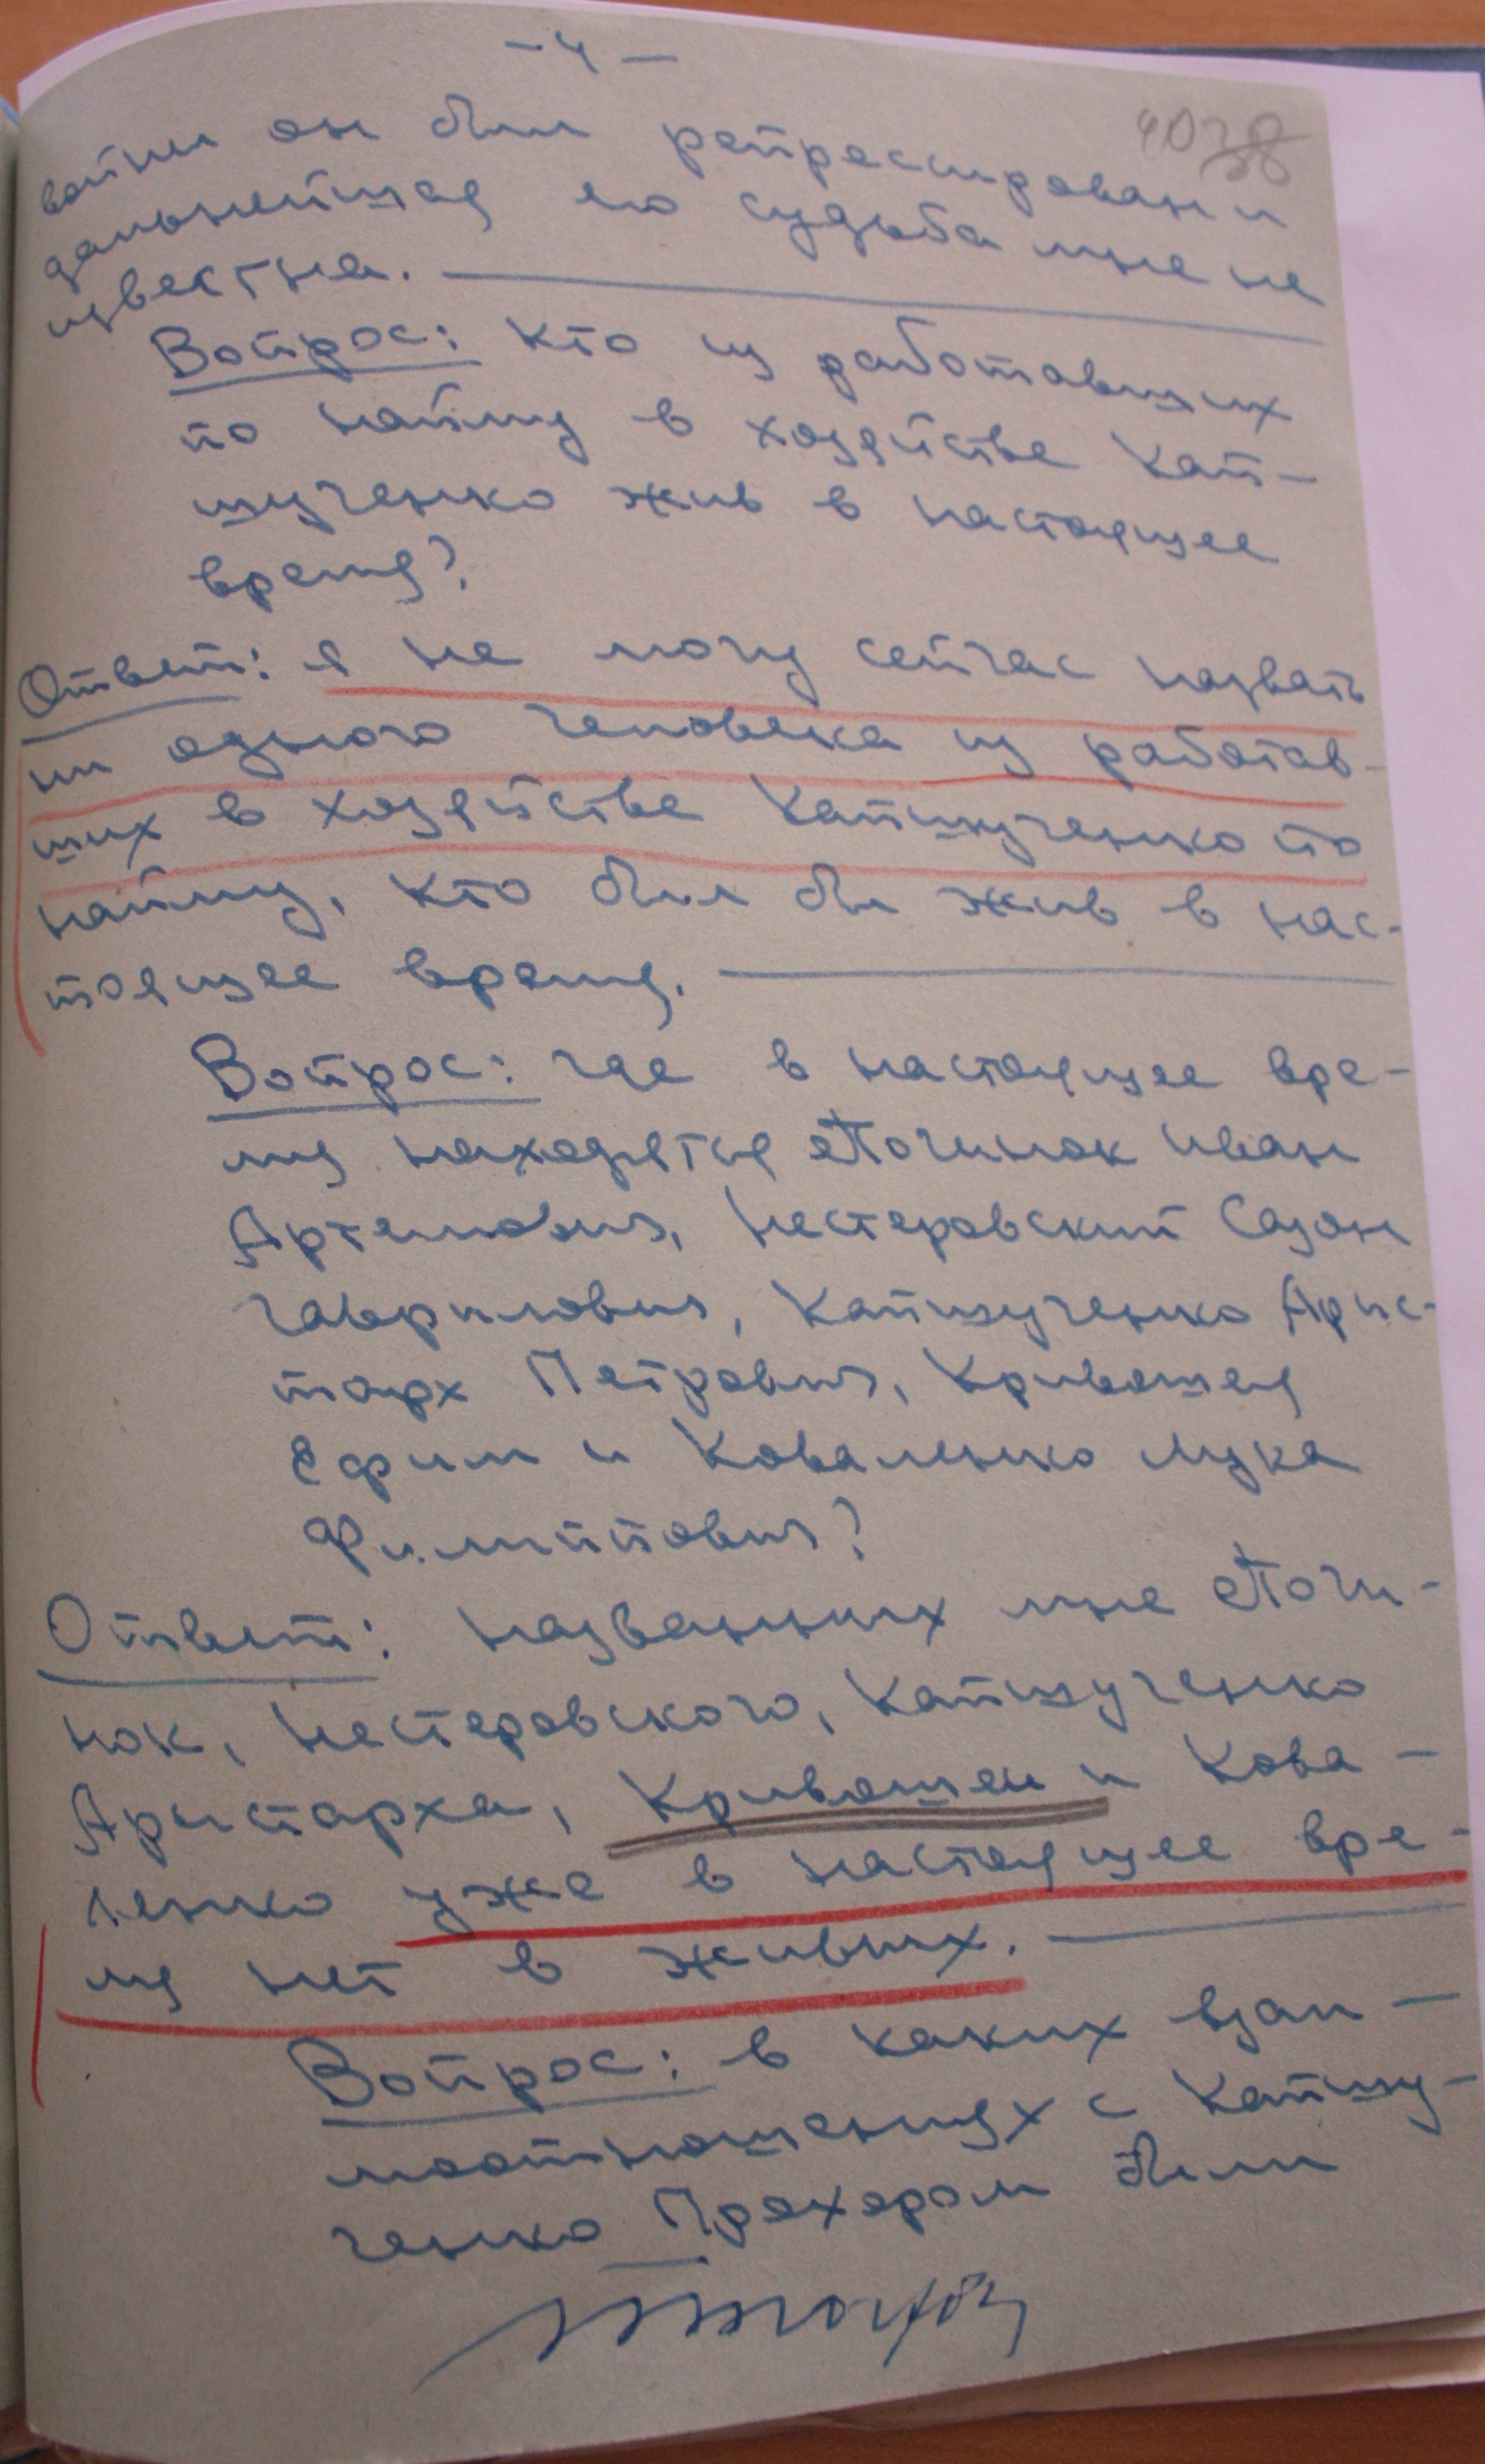 - 4 -
войны он был репрессирован и
дальнейшая его судьба мне не
известна.
Вопрос: Кто из работавших
по найму в хозяйстве Кап-
шученко жив в настоящее
время?
Ответ: я не могу сейчас назвать
ни одного человека из работав-
ших в хозяйстве Капшученко по
найму, кто был бы жив в нас-
тоящее время.
Вопрос: где в настоящее вре-
мя находятся Починок Иван
Артемович, Нестеровский Сазон
Гаврилович, Капшученко Арис-
тарх Петрович, Кривошея
Ефим и Коваленко Лука
Филиппович?
Ответ: названных мне Почи-
нок, Нестеровского, Капшученко
Аристарха, Кривошеи и Кова-
ленко уже в настоящее вре-
мя нет в живых.
Вопрос: в каких взаи-
моотношениях с Капшу-
ченко Прохором были